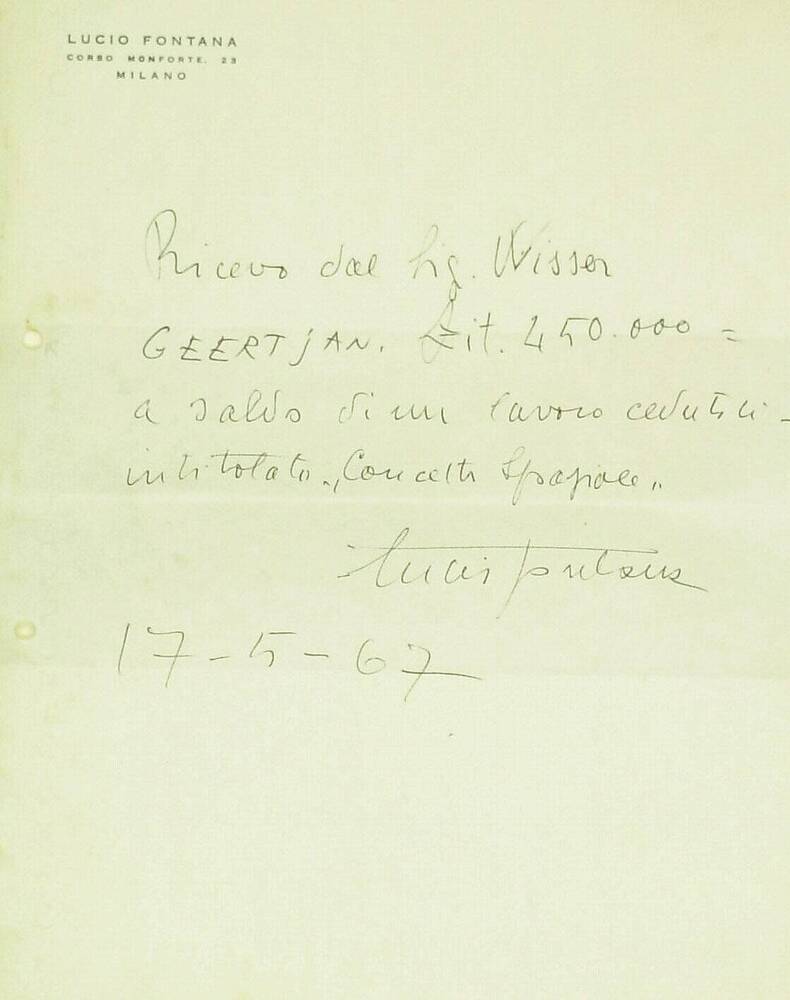 LUCIO FONTANA
CORSO MONFORTE, 23
MILANO
Ricevo dal Sig. Visser
GEERTJAN. Lit. 450.000 =
a saldo di un lavoro cedutoli -
intitolato „Concetto Spaziale„
Lucio Fontana
17-5-67